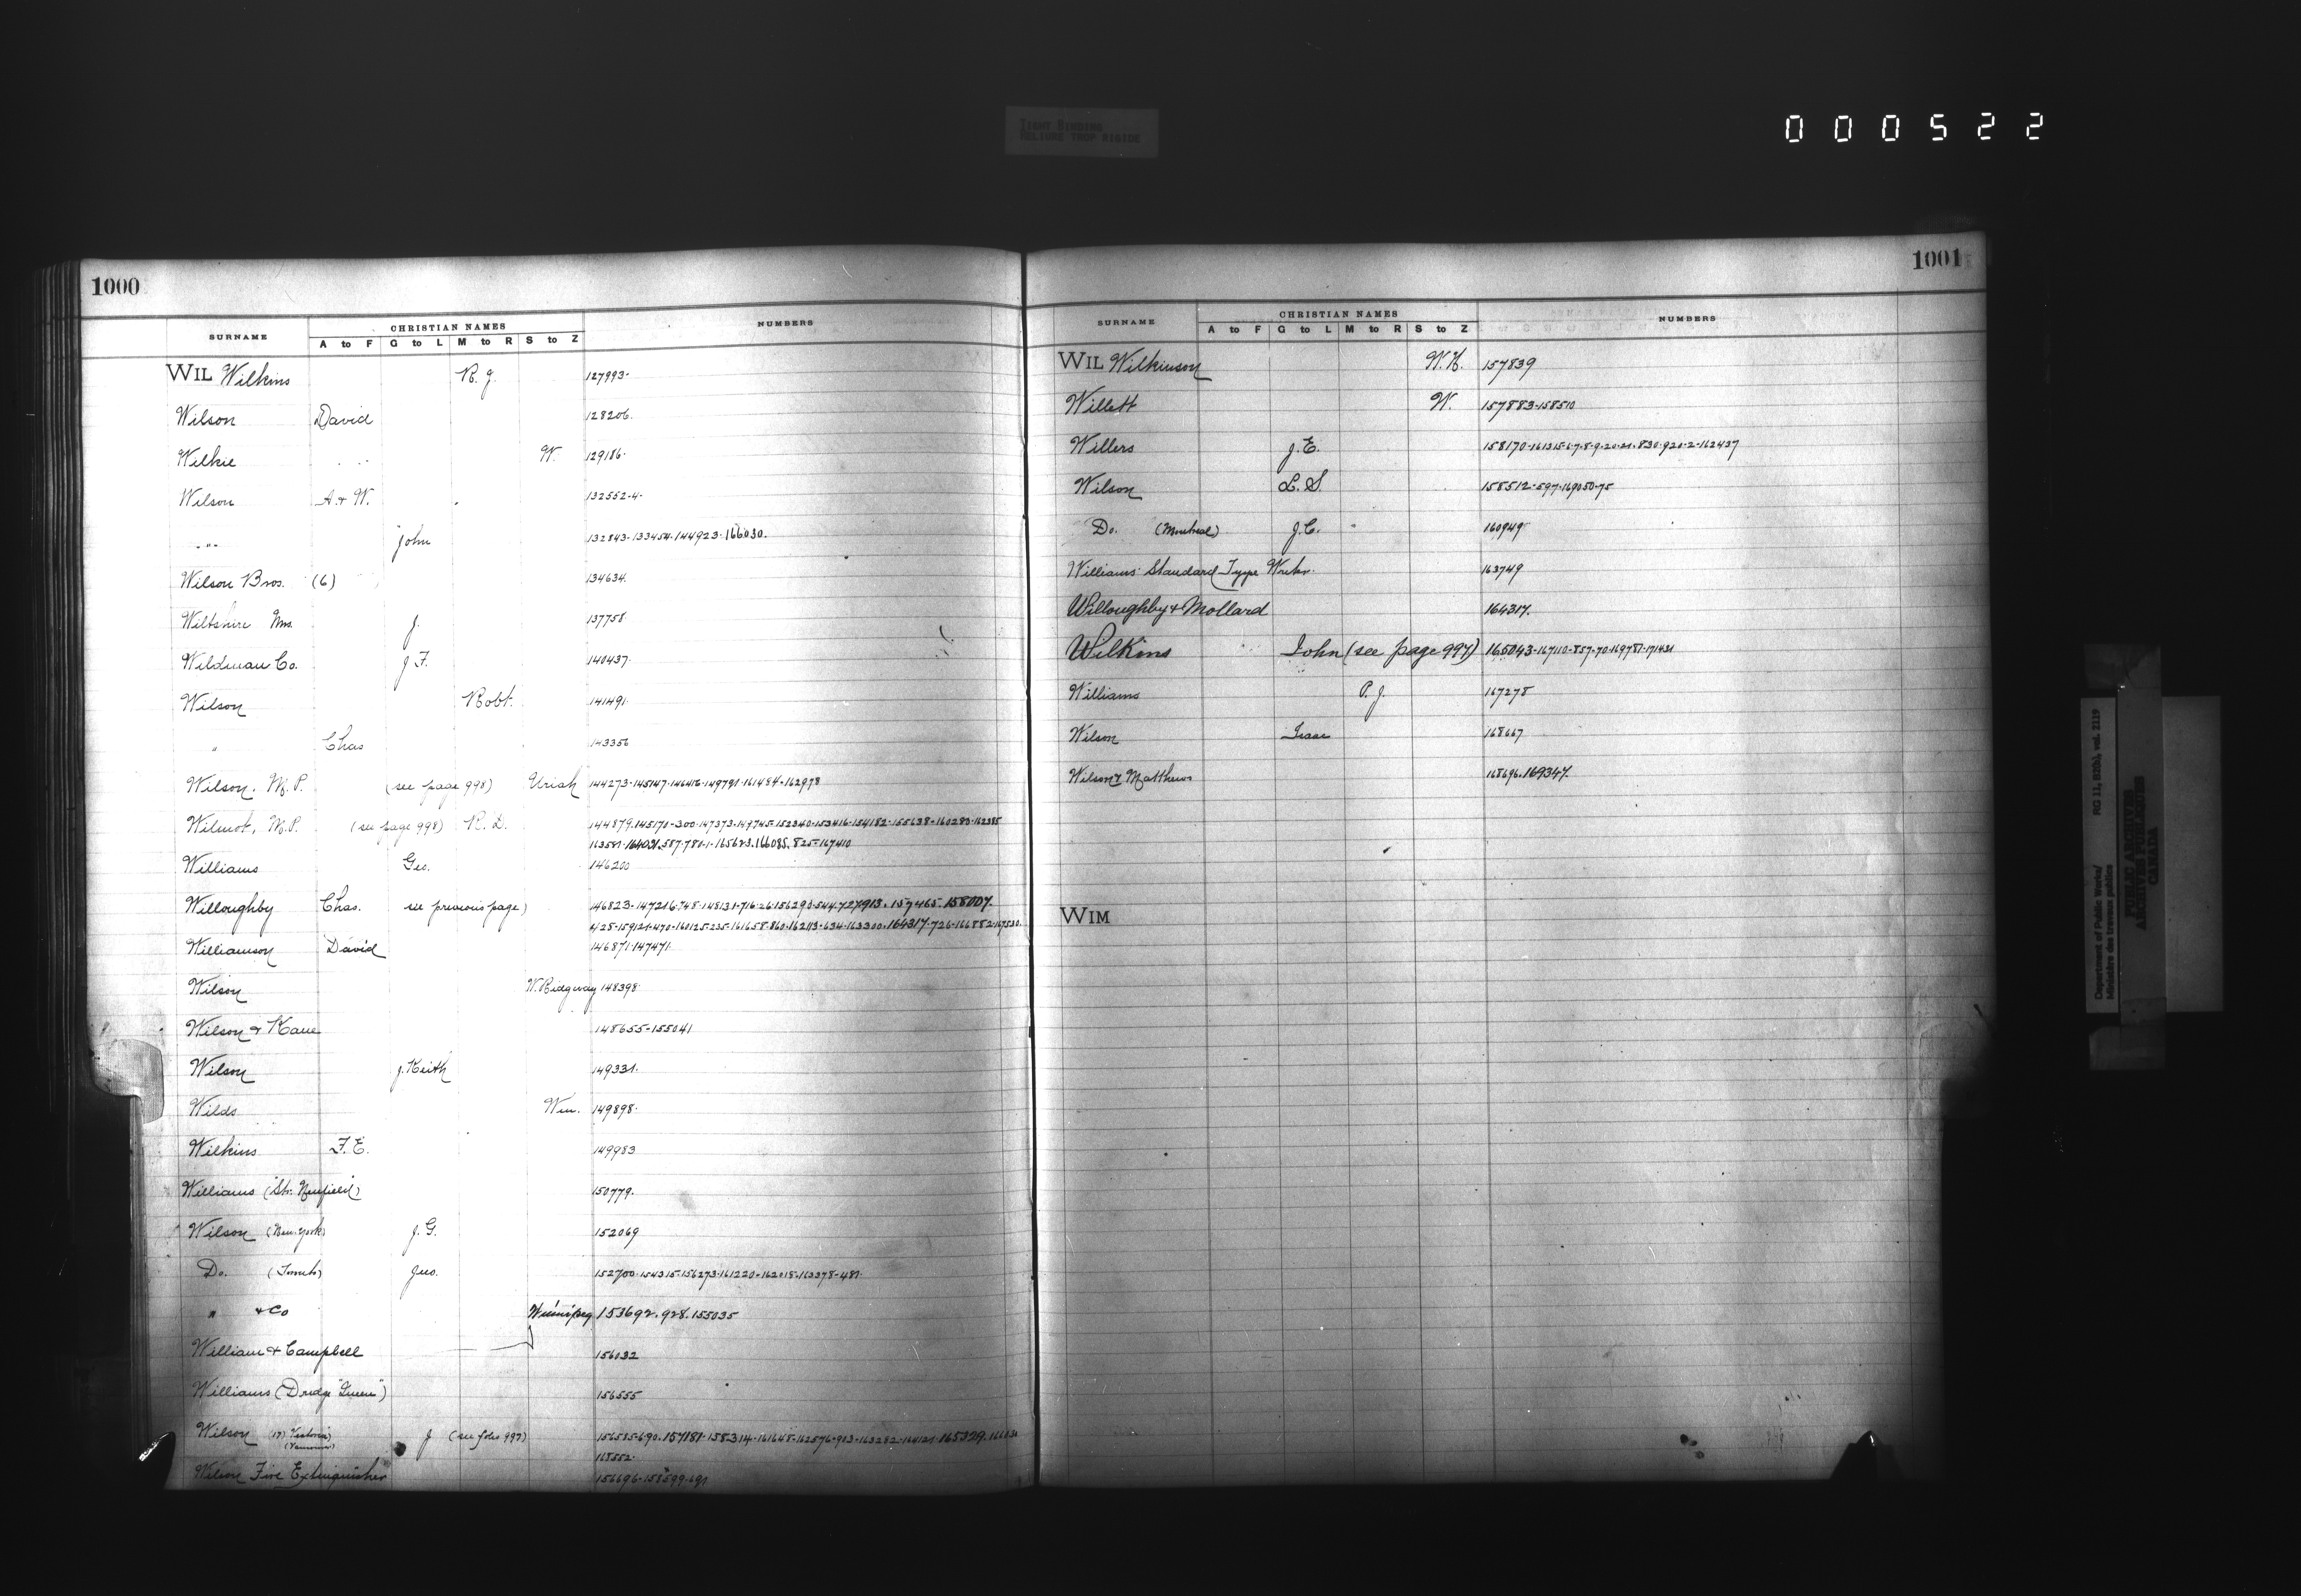 TIGHT BINDING
RELIURE TROP RIGIDE
000522
1000
SURNAME CHRISTIAN NAMES NUMBERS
A to F G to L M to R S to Z
WIL Wilkins R. J. 127993.
Wilson David 128206.
Wilkie W. 129186.
Wilson A. & W. 132552-4.
" John 132843. 133454. 144923. 166030.
Wilson Bros. (6) 134634.
Wiltshire Mrs. J. 137758
Wildman Co. J. F. 140437.
Wilson Robt. 141491.
" Chas 143356
Wilson, M.P. (see page 998) Uriah 144273. 145147. 146416. 149791. 161484. 162978
Wilmot, M.P. (see page 998) R. D. 144879. 145170-300. 147373. 149745. 152340. 153416. 154182. 155638. 160283. 162385
164031. 587. 780-1. 165623. 166085. 825. 167410
Williams Geo. 146200
Willoughby Chas. see previous page) 146823. 147216. 748. 148131. 716. 26. 156290. 544. 727. 913. 157465. 158007.
428. 159121. 470. 160125. 235. 161658. 860. 162113. 634. 163300. 164317. 726. 166882. 167530.
Williamson David 146871. 147471.
Wilson W. Ridgway 148398.
Wilson & Kane 148655-155041
Wilson J. Keith 149331.
Wilds Wm. 149898.
Wilkins F. E. 149983
Williams (Str. ) 150779.
Wilson (New York) J. G. 152069
Do. (Toronto) Jno. 152700. 154315. 156273. 161220. 162018. 163378-481.
" & Co Winnipeg 153692. 928. 155035
William & Campbell 156032
Williams (Dredge "Queen") 156555
Wilson (17) Victoria) J (see folio 997) 156585-690. 157181. 158314. 161648. 162576. 903. 163282. 164121. 165329.
(Vancouver) 168552.
Wilson Fire Extinguisher 156696. 158599. 691
1001
SURNAME CHRISTIAN NAMES NUMBERS
A to F G to L M to R S to Z
WIL Wilkinson W. H. 157839
Willett W. 157883. 158510
Willers J. E. 158170. 161315-6-7-8-9-20-21. 830. 920-2. 162437
Wilson L. S. 158512. 597. 169050-75
Do. (Montreal) J. C. 160949
Williams' Standard Type Writer. 163749
Willoughby & Mollard 164317.
Wilkins John (see page 997) 165043. 167110-857-70. 169787. 171431
Williams P. J. 167278
Wilson Isaac 168667
Wilson & Matthews 168696. 169347.
WIM
Department of Public Works/ RG 11, B2(b), vol. 2119
Ministère des travaux publics
PUBLIC ARCHIVES
ARCHIVES PUBLIQUES
CANADA